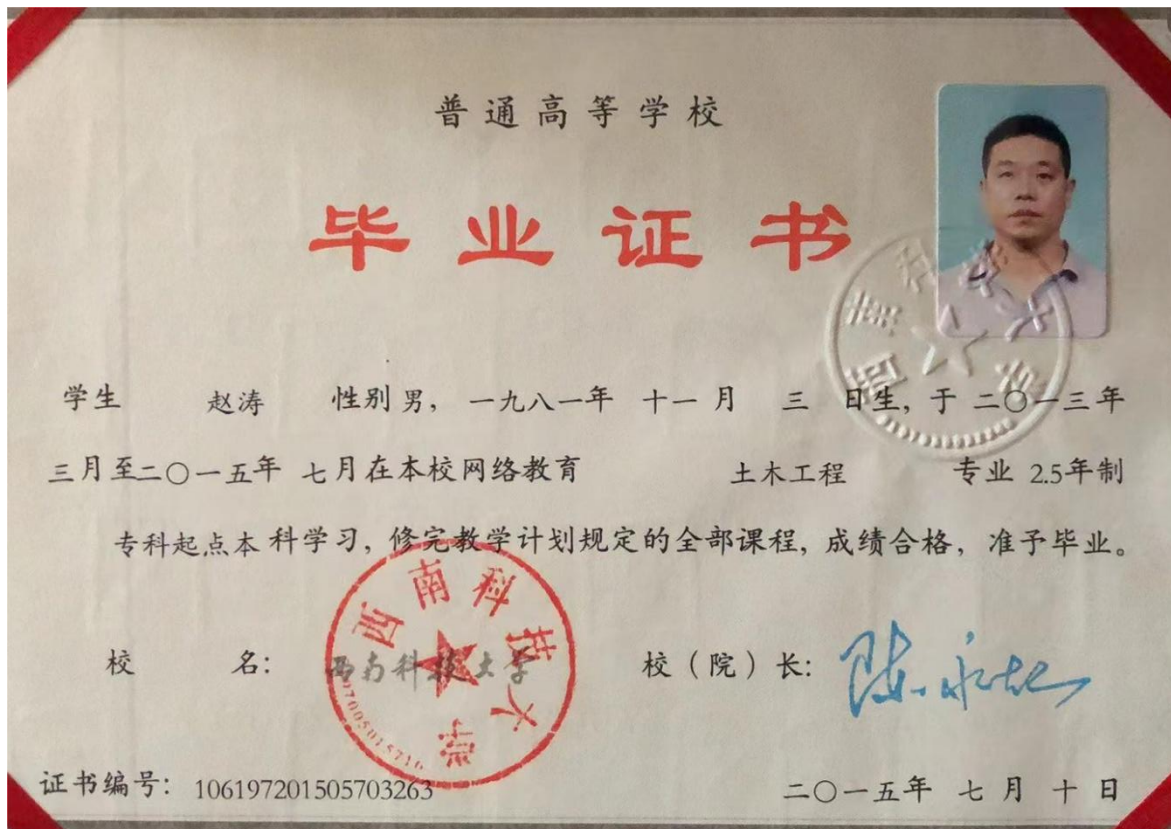 普通高等学校
毕业证书
学生 赵涛 性别男，一九八一年 十一月 三 日生，于二〇一三年
三月至二〇一五年 七月在本校网络教育 土木工程 专业 2.5年制
专科起点本科学习，修完教学计划规定的全部课程，成绩合格，准予毕业。
校 名： 西南科技大学 校（院）长：
西南科技大学
证书编号：106197201505703263 二〇一五年 七月 十日